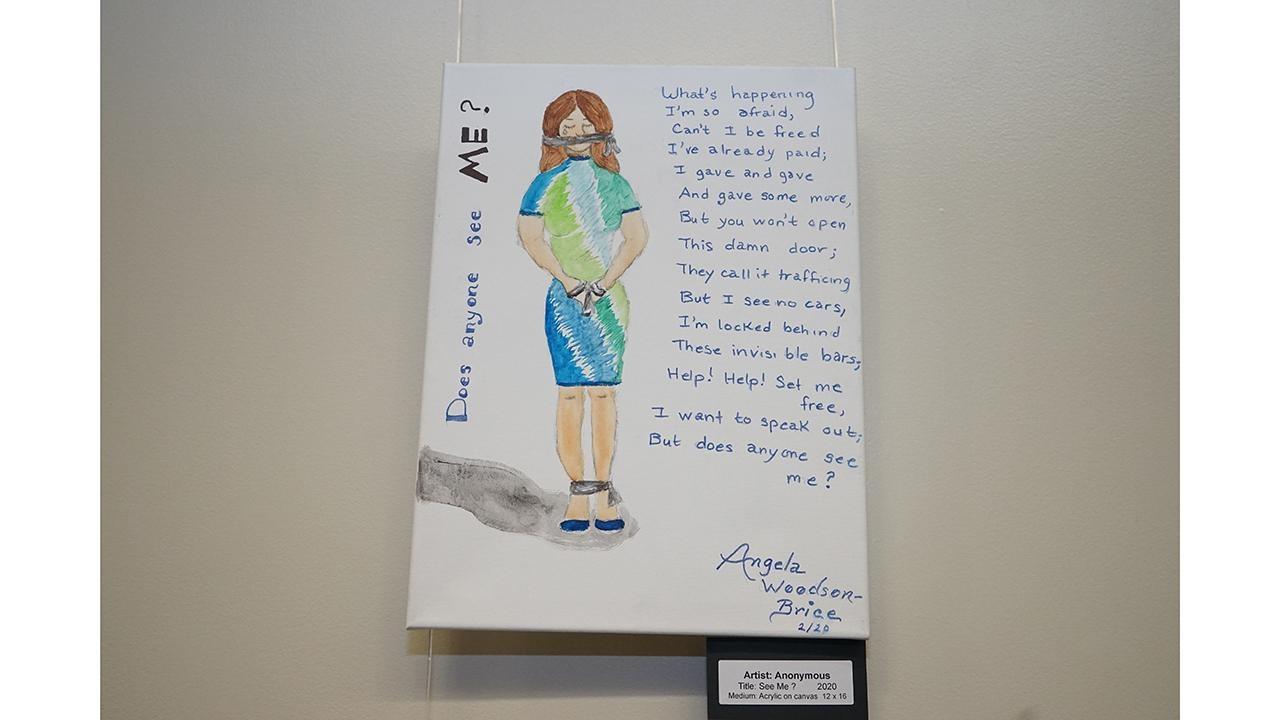 Does anyone see ME?
What's happening
I'm so afraid,
Can't I be freed
I've already paid;
I gave and gave
And gave some more,
But you won't open
This damn door;
They call it trafficing
But I see no cars,
I'm locked behind
These invisible bars;
Help! Help! Set me
free,
I want to speak out;
But does anyone see
me?
Angela
Woodson-
Brice
2/20
Artist: Anonymous
Title: See Me ? 2020
Medium: Acrylic on canvas 12 x 16